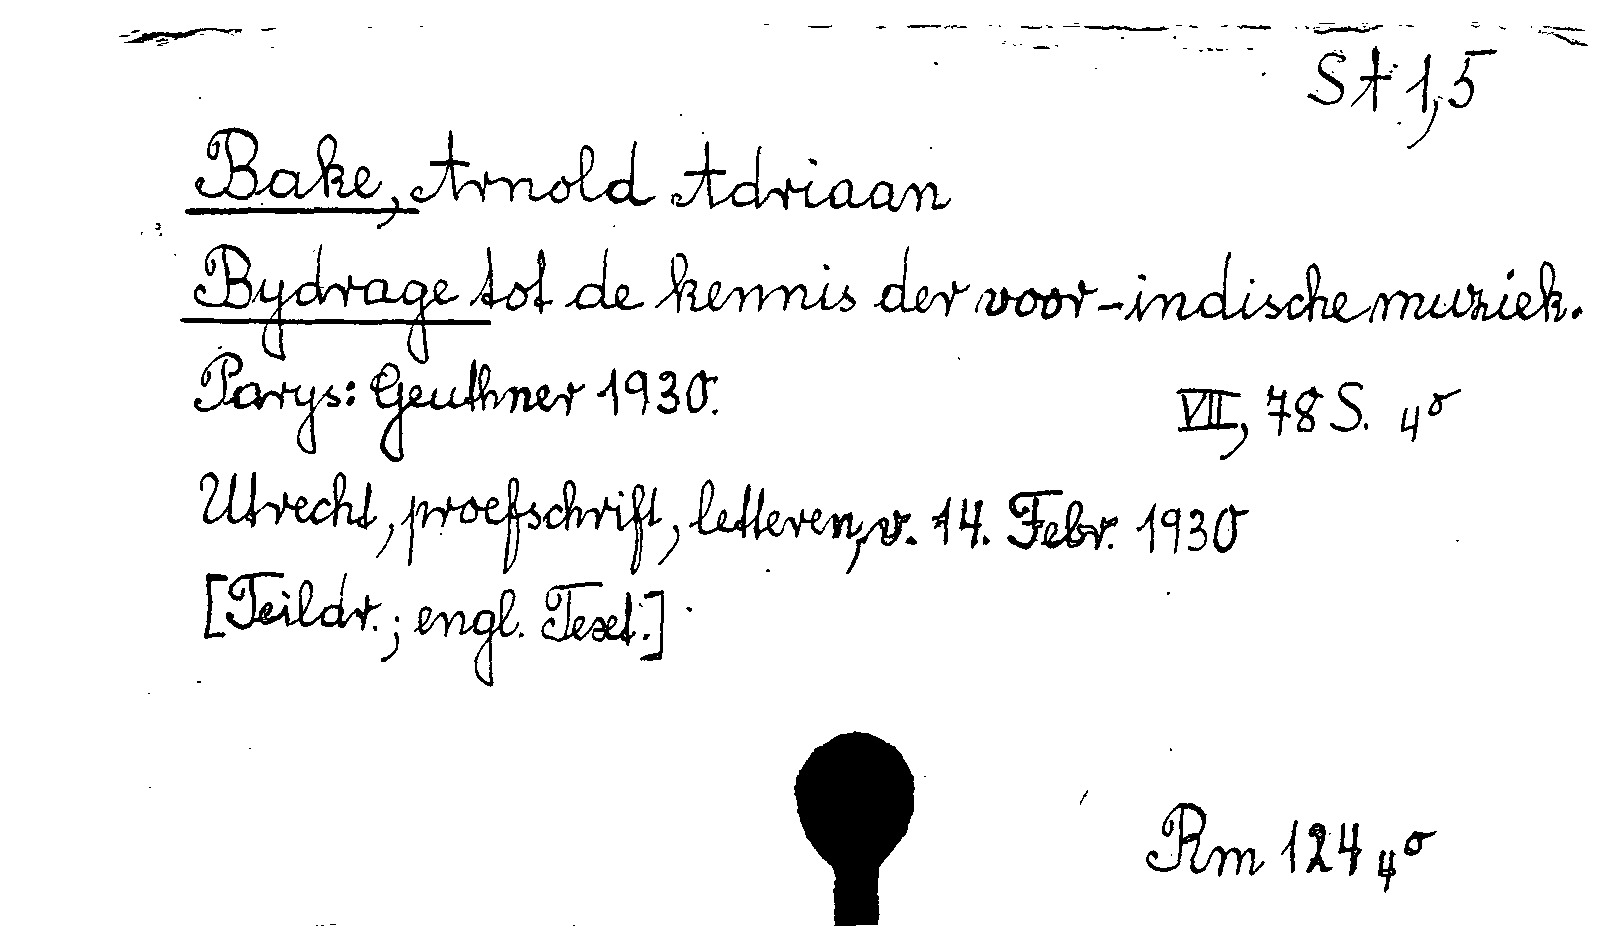 St 1,5
Bake, Arnold Adriaan
Bydrage tot de kennis der voor-indische muziek.
Parys: Geuthner 1930. VII, 78 S. 4°
Utrecht, proefschrift, letteren, v. 14. Febr. 1930
[Teildr.; engl. Text.]
Rm 124 4°